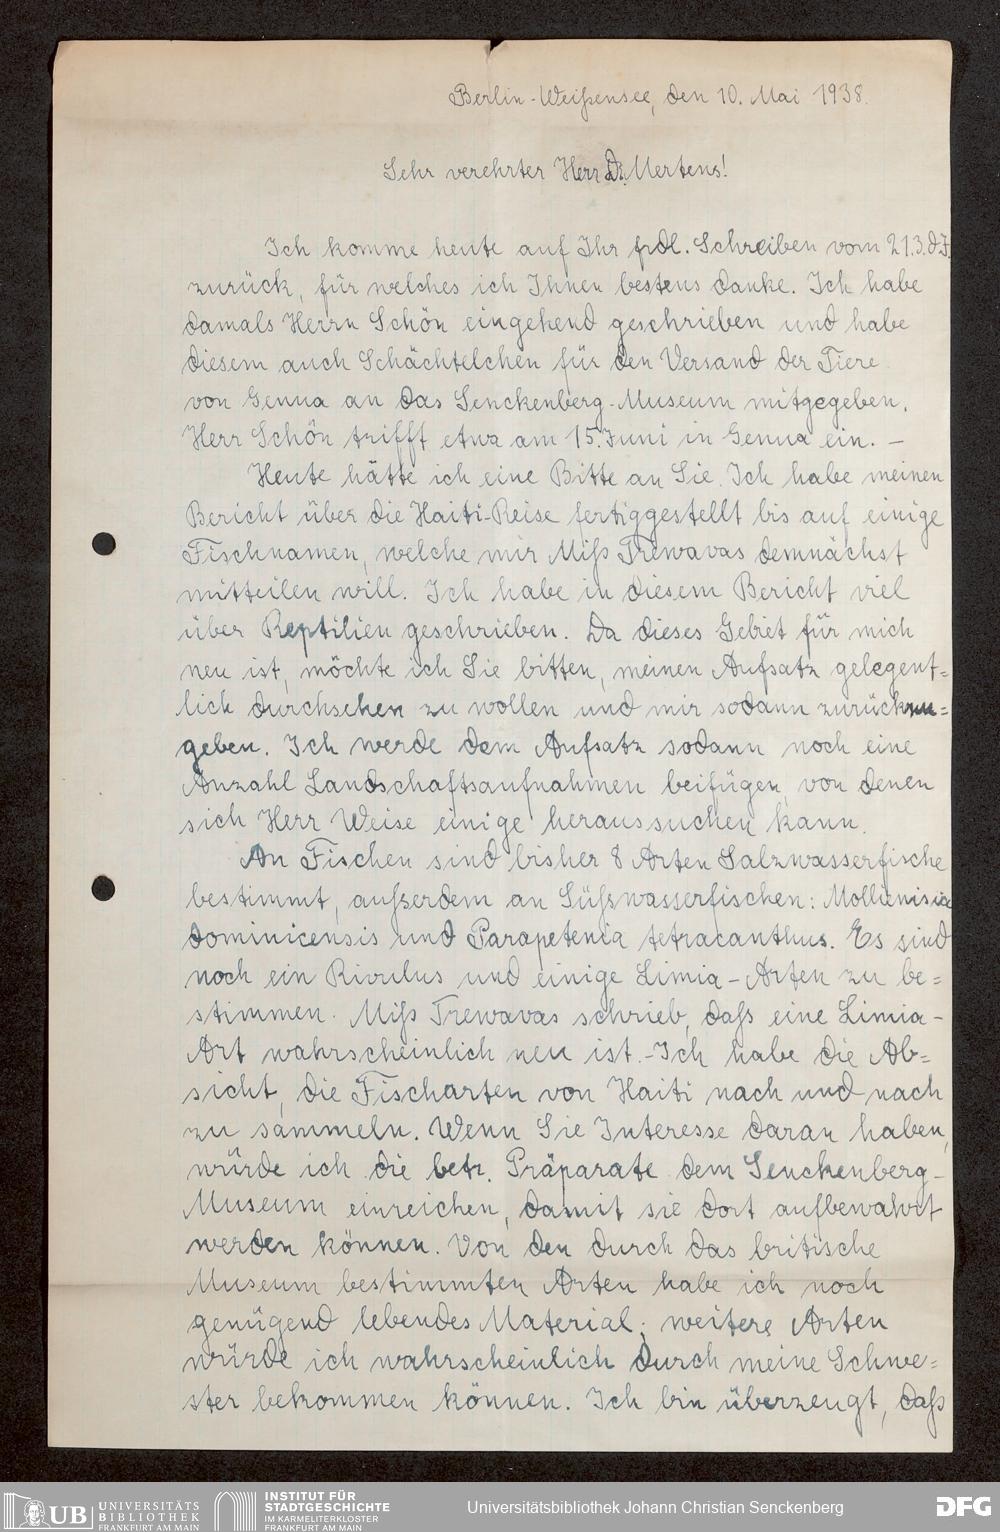 Berlin-Weißensee, den 10. Mai 1938.
Sehr verehrter Herr Dr. Mertens!
Ich komme heute auf Ihr frdl. Schreiben vom 21.3.d.J.
zurück, für welches ich Ihnen bestens danke. Ich habe
damals Herrn Schön eingehend geschrieben und habe
diesem auch Schächtelchen für den Versand der Tiere
von Genua an das Senckenberg-Museum mitgegeben.
Herr Schön trifft etwa am 15. Juni in Genua ein. –
Heute hätte ich eine Bitte an Sie. Ich habe meinen
Bericht über die Haiti-Reise fertiggestellt bis auf einige
Fischnamen, welche mir Miß Trewavas demnächst
mitteilen will. Ich habe in diesem Bericht viel
über Reptilien geschrieben. Da dieses Gebiet für mich
neu ist, möchte ich Sie bitten, meinen Aufsatz gelegent=
lich durchsehen zu wollen und mir sodann zurückzu=
geben. Ich werde dem Aufsatz sodann noch eine
Anzahl Landschaftsaufnahmen beifügen, von denen
sich Herr Weise einige heraussuchen kann.
An Fischen sind bisher 8 Arten Salzwasserfische
bestimmt, außerdem an Süßwasserfischen: Mollienisia
dominicensis und Parapetenia tetracanthus. Es sind
noch ein Rivulus und einige Limia-Arten zu be=
stimmen. Miß Trewavas schrieb, daß eine Limia-
Art wahrscheinlich neu ist. - Ich habe die Ab=
sicht, die Fischarten von Haiti nach und nach
zu sammeln. Wenn Sie Interesse daran haben,
würde ich die betr. Präparate dem Senckenberg-
Museum einreichen, damit sie dort aufbewahrt
werden können. Von den durch das britische
Museum bestimmten Arten habe ich noch
genügend lebendes Material; weitere Arten
würde ich wahrscheinlich durch meine Schwe=
ster bekommen können. Ich bin überzeugt, daß
UB UNIVERSITÄTS
BIBLIOTHEK
FRANKFURT AM MAIN
INSTITUT FÜR
STADTGESCHICHTE
IM KARMELITERKLOSTER
FRANKFURT AM MAIN
Universitätsbibliothek Johann Christian Senckenberg
DFG